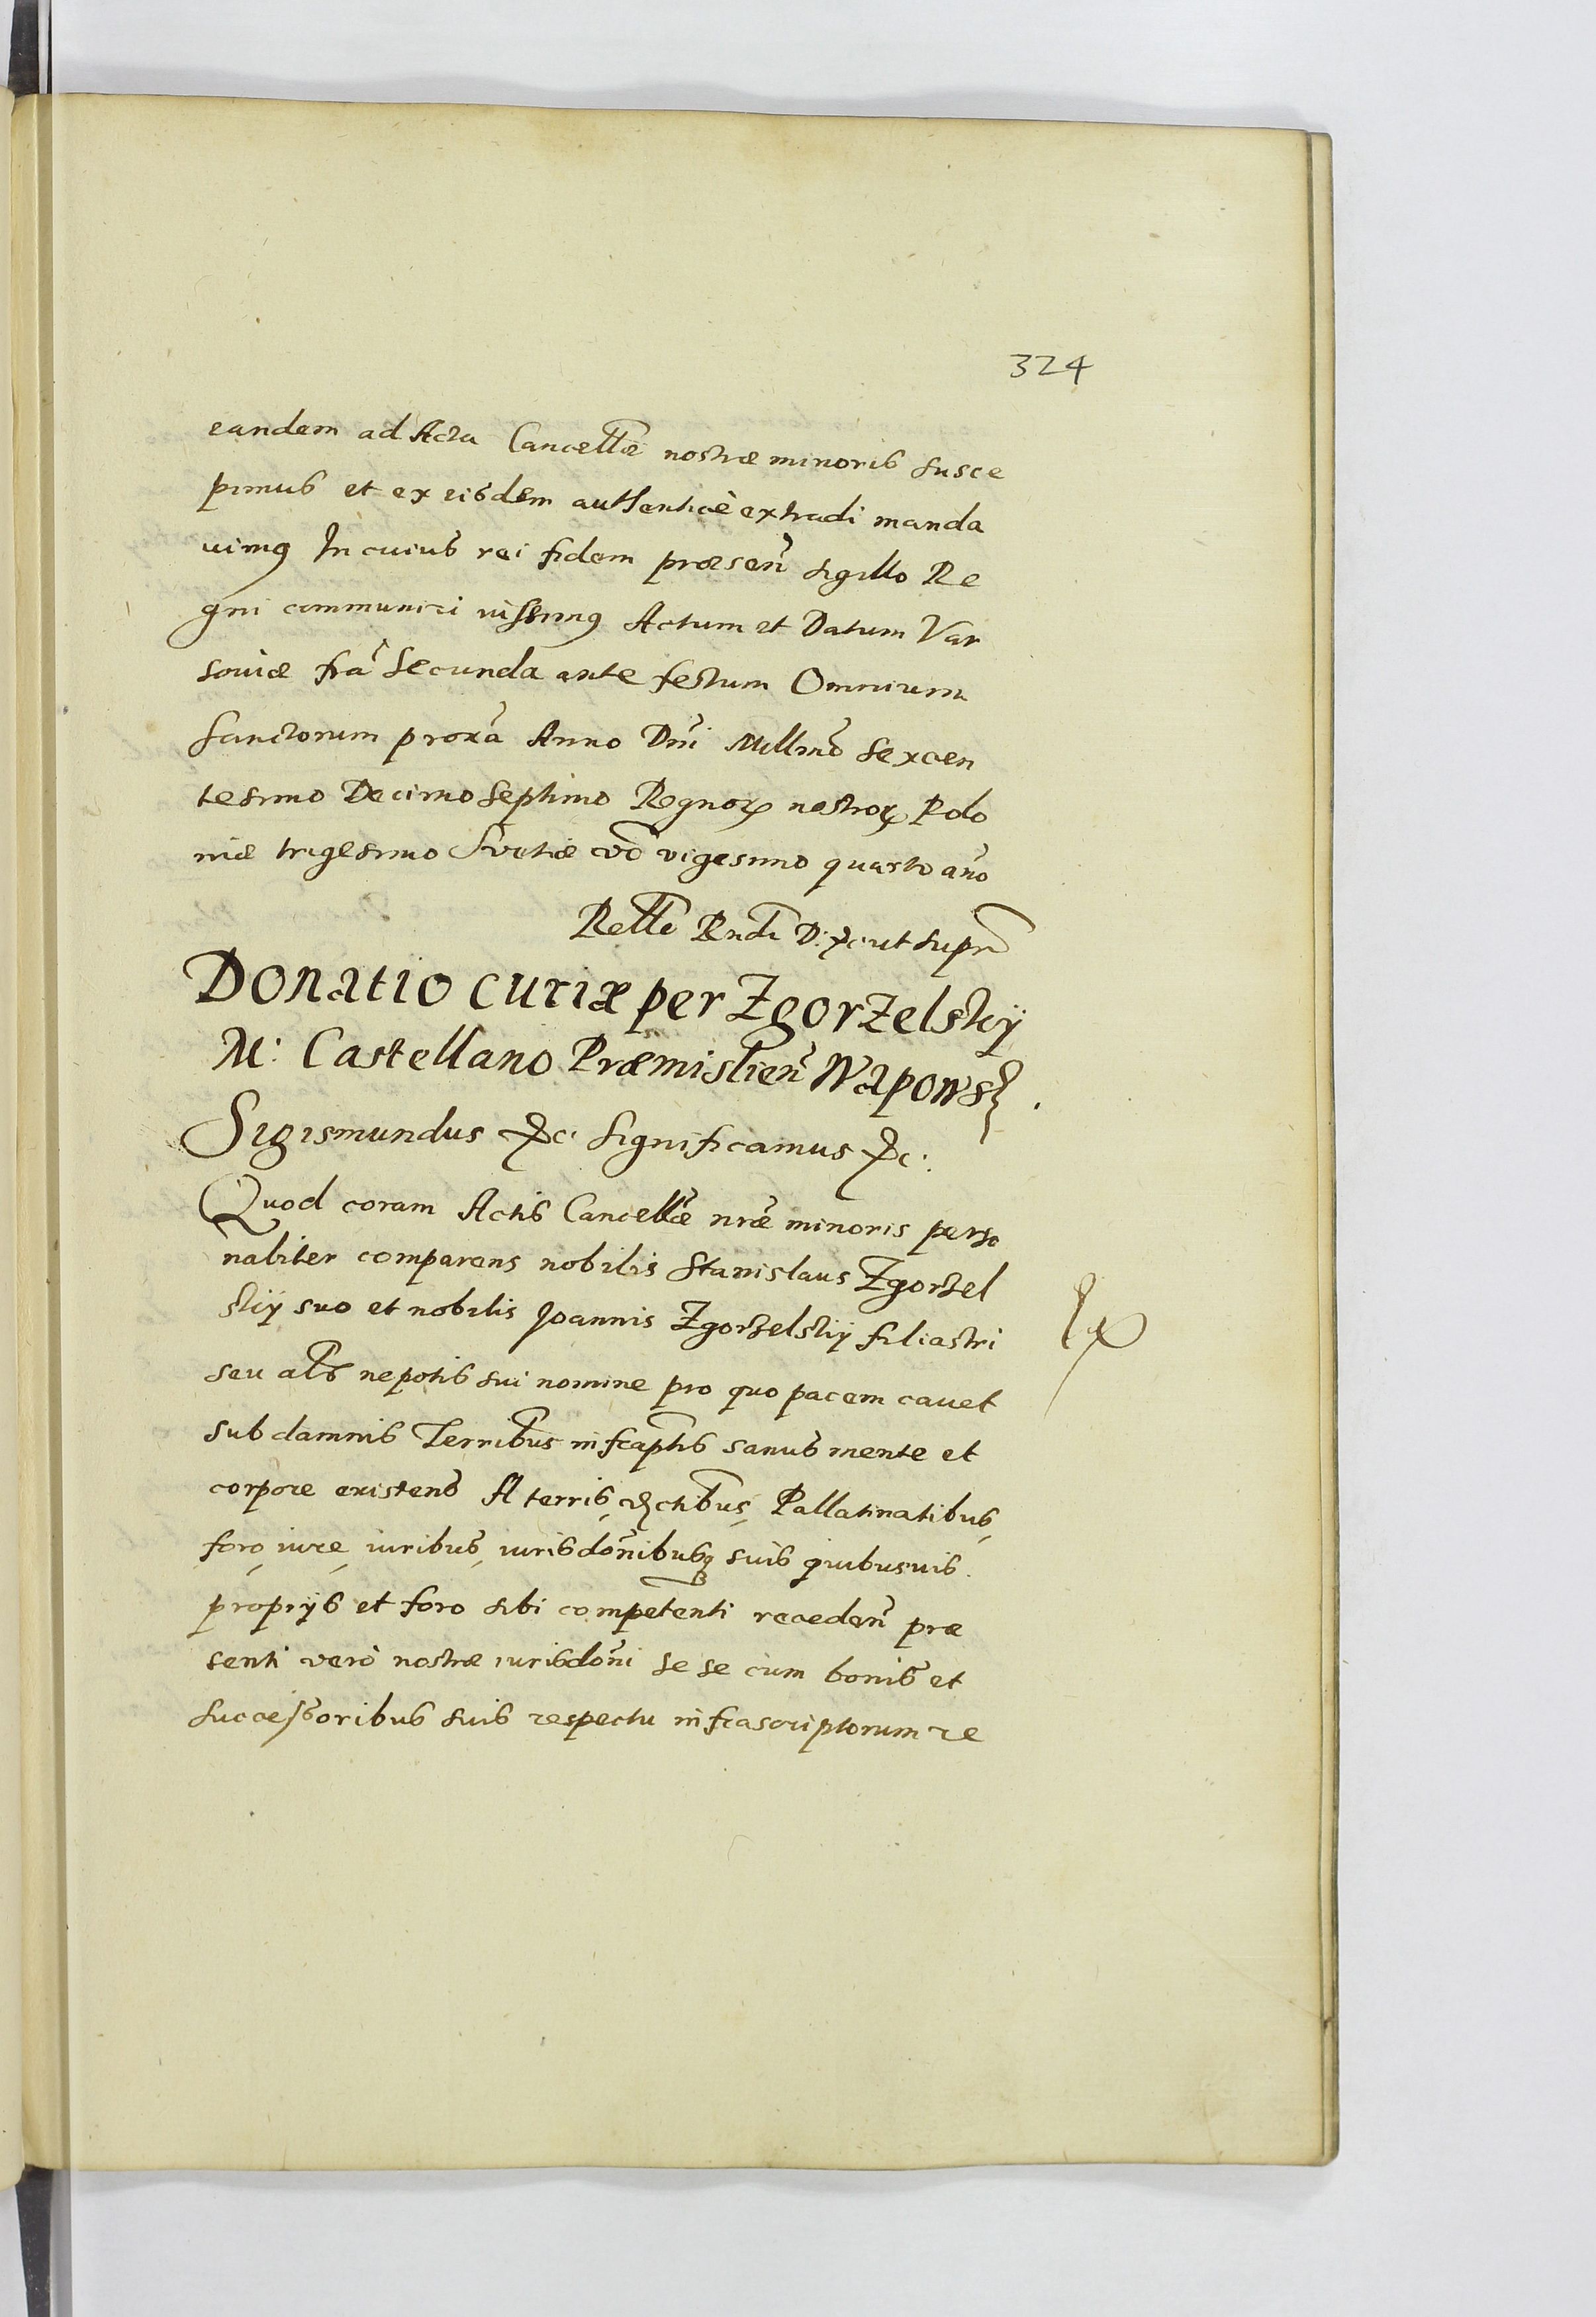 324
eandem ad Acta Cancellæ nostræ minoris susce
pimus et ex eisdem authenticè extradi manda
uimus In cuius rei fidem præsen̄ sigillo Re
gni communiri iussimus Actum et Datum Var
souiæ fr̄a Secunda ante festum Omnium
Sanctorum prox̄a Anno Dn̄i Mill̄mo Sexcen
tesimo Decimo Septimo Regnorꝝ nostrorꝝ Polo
niæ trigesimo Suetiæ v̄o vigesimo quarto an̄o
Rell̄o Rn̄di D: &c: ut supr̄
Donatio curiæ per Zgorzelskij
M: Castellano Præmislien̄ Wapows̄.
Sigismundus &c: Significamus &c:
Quod coram Actis Cancell̄æ nr̄æ minoris perso
naliter comparens nobilis Stanislaus Zgorzel
skij suo et nobilis Joannis Zgorzelskij filiastri
seu al̄s nepotis sui nomine pro quo pacem cauet
sub damnis Terrib̄us infrap̄tis sanus mente et
corpore existens A terris, Pallatinatibus,
foro, iure, iuribus, iurisdōnibusq̨ suis quibusuis
proprijs et foro sibi competenti receden̄ præ
senti verò nostræ iurisdōni se se cum bonis et
successoribus suis respectu infrascriptorum re